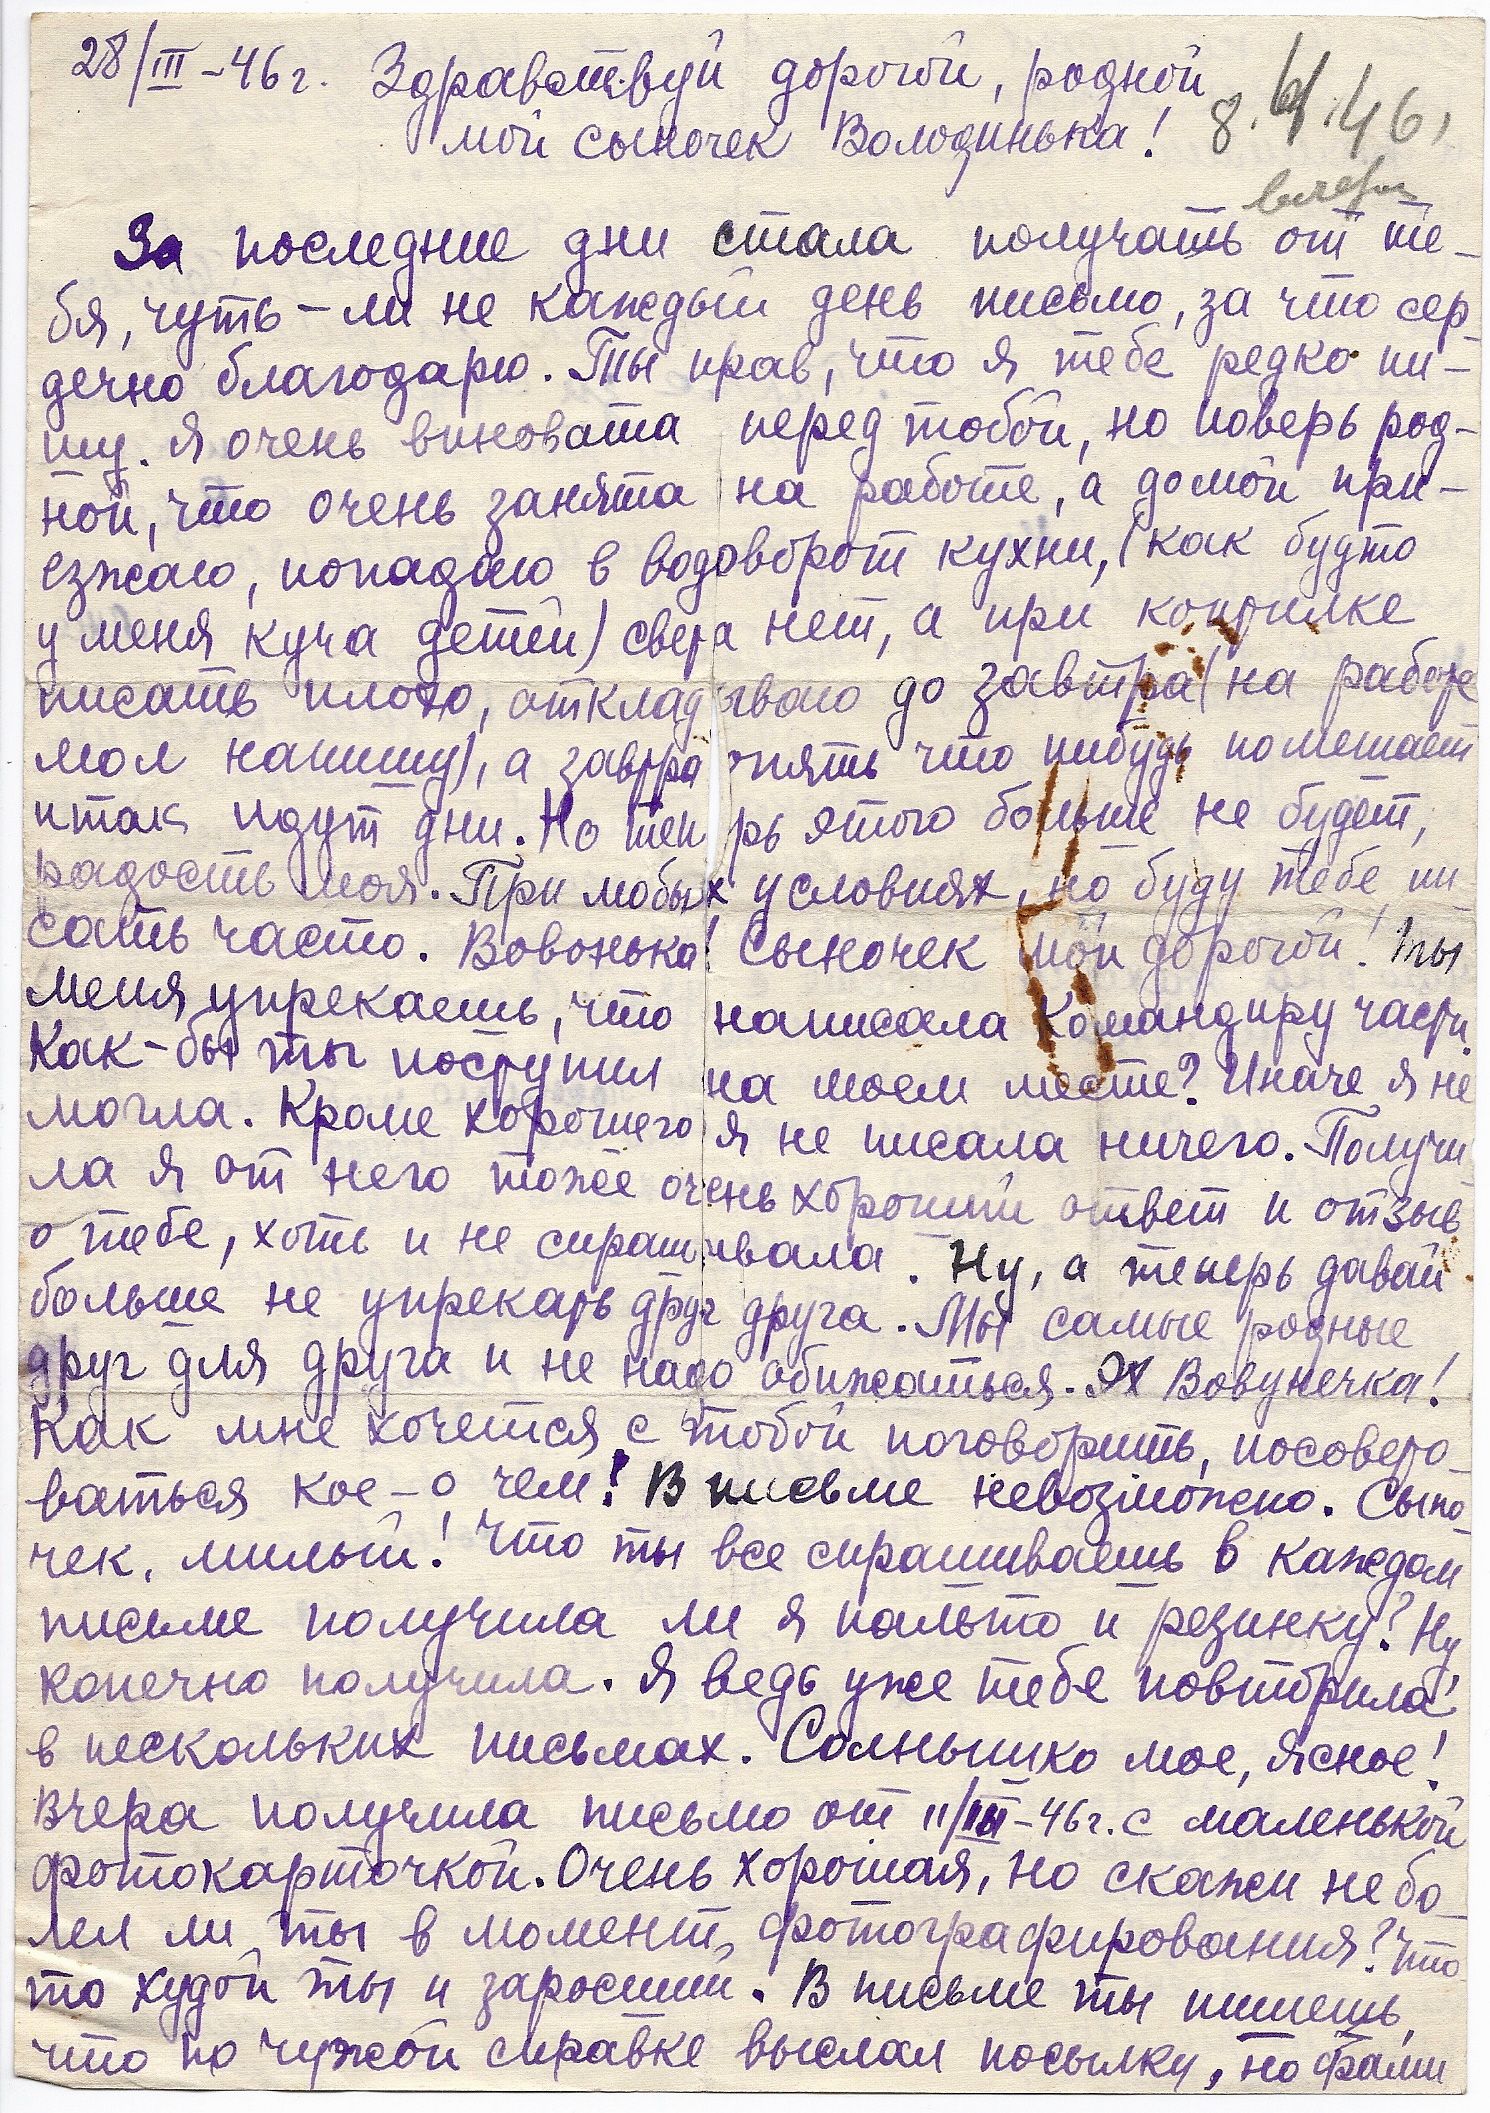 28/III-46г. Здравствуй дорогой, родной
мой сыночек Володинька!
8.IV.46.
вечер
За последние дни стала получать от те-
бя, чуть-ли не каждый день письмо, за что сер-
дечно благодарю. Ты прав, что я тебе редко пи-
шу. Я очень виновата перед тобой, но поверь род-
ной, что очень занята на работе, а домой при-
езжаю, попадаю в водоворот кухни, (как будто
у меня куча детей) света нет, а при коптилке
писать плохо, откладываю до завтра (на работе
мол напишу), а завтра опять что нибудь помешает
итак идут дни. Но теперь этого больше не будет,
радость моя. При любых условиях, но буду тебе пи
сать часто. Вовонька! Сыночек мой дорогой! Ты
меня упрекаешь, что написала Командиру части.
Как-бы ты поступил на моем месте? Иначе я не
могла. Кроме хорошего я не писала ничего. Получи
ла я от него тоже очень хороший ответ и отзыв
о тебе, хоть и не спрашивала. Ну, а теперь давай
больше не упрекать друг друга. Мы самые родные
друг для друга и не надо обижаться. Эх Вовунечка!
Как мне хочется с тобой поговорить, посовето-
ваться кое-о чем! В письме невозможно. Сыно-
чек, милый! Что ты все спрашиваешь в каждом
письме получила ли я пальто и резинку? Ну
конечно получила. Я ведь уже тебе повторила
в нескольких письмах. Солнышко мое, ясное!
Вчера получила письмо от 11/III-46г. с маленькой
фотокарточкой. Очень хорошая, но скажи не бо-
лел ли ты в момент фотографирования? Что-
то худой ты и заросший. В письме ты пишешь,
что по чужой справке выслал посылку, но фами